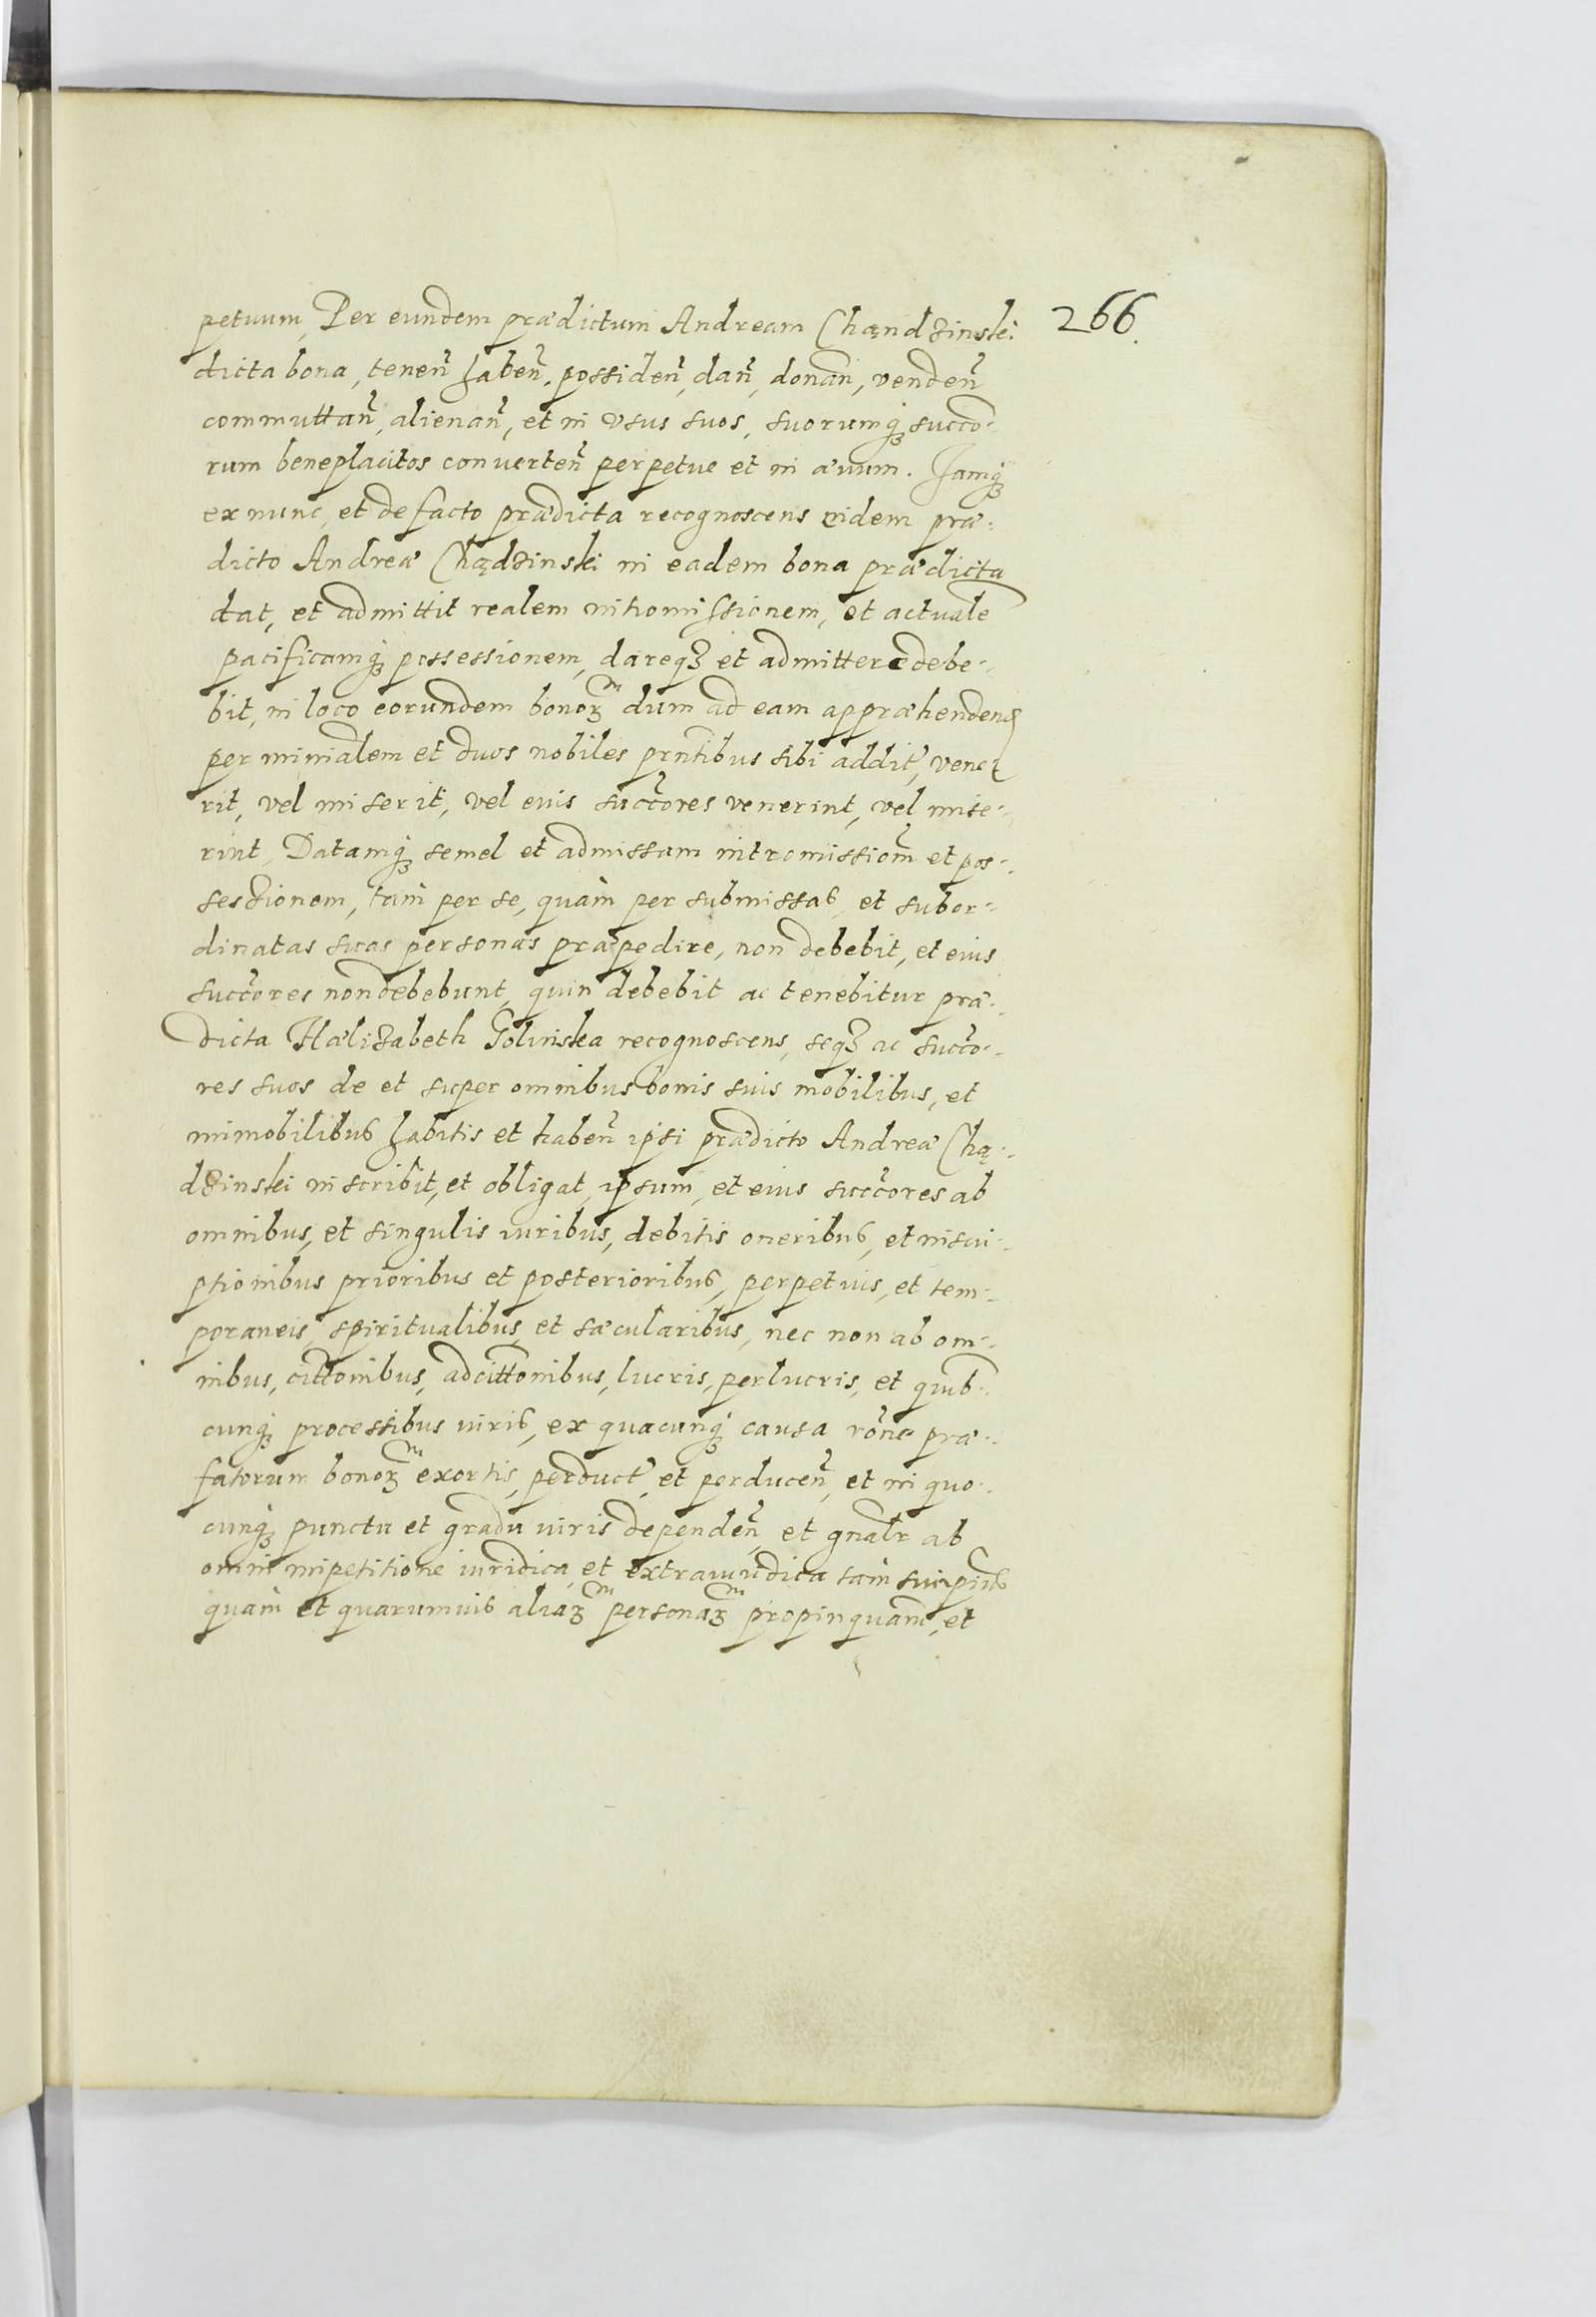 266.
petuum, Per eundem prædictum Andream Chandzinski
dicta bona, teneñ habeñ, possideñ, dañ, donañ, vendeñ
commuttañ, alienañ, et in vsus suos, suorumq̃ succo-
rum beneplacitos conuerteñ perpetue et in æuum. Jamq̃
ex nunc, et de facto prædicta recognoscens eidem præ-
dicto Andreæ Chądzinski in eadem bona prædicta
dat, et admittit realem intromissionem, et actualē
pacificamq̃ possessionem, dareqʒ et admittere debe-
bit, in loco eorundem bonoꝝ dum ad eam appræhendenđ
per minialem et duos nobiles pr̃ntibus sibi addit̃, vene
rit, vel miserit, vel eius succ̃ores venerint, vel mise-
rint, Datamq̃ semel et admissam intromission̄e et pos-
sessionem, tam per se, quàm per submissas, et subor-
dinatas suas personas præpedire, non debebit, et eius
succ̃ores non debebunt, quin debebit ac tenebitur præ-
dicta Hælizabeth Golinska recognoscens, seqʒ ac succ̃o-
res suos de et super omnibus bonis suis mobilibus, et
immobilibus habitis et habeñ ipsi prædicto Andreæ Chą-
dzinski inscribit, et obligat, ipsum, et eius succ̃ores ab
omnibus, et singulis iuribus, debitis oneribus, et inscri-
ptionibus prioribus et posterioribus, perpetuis, et tem-
poraneis, spiritualibus, et sæcularibus, nec non ab om-
nibus, citt̃onibus, adcitt̃onibus, lucris, perlucris, et quib-
cunq̃ processibus iuris, ex quacunq̃ causa rõne præ-
fatorum bonoꝝ exortis, perduct̃, et perduceñ, et in quo-
cunq̃ puncto et gradu iuris dependeñ, et gn̄alr ab
omni impetitione iuridica, et extraiuridica tàm
quàm et quarumuis aliaꝝ personaꝝ propinquam̃, et